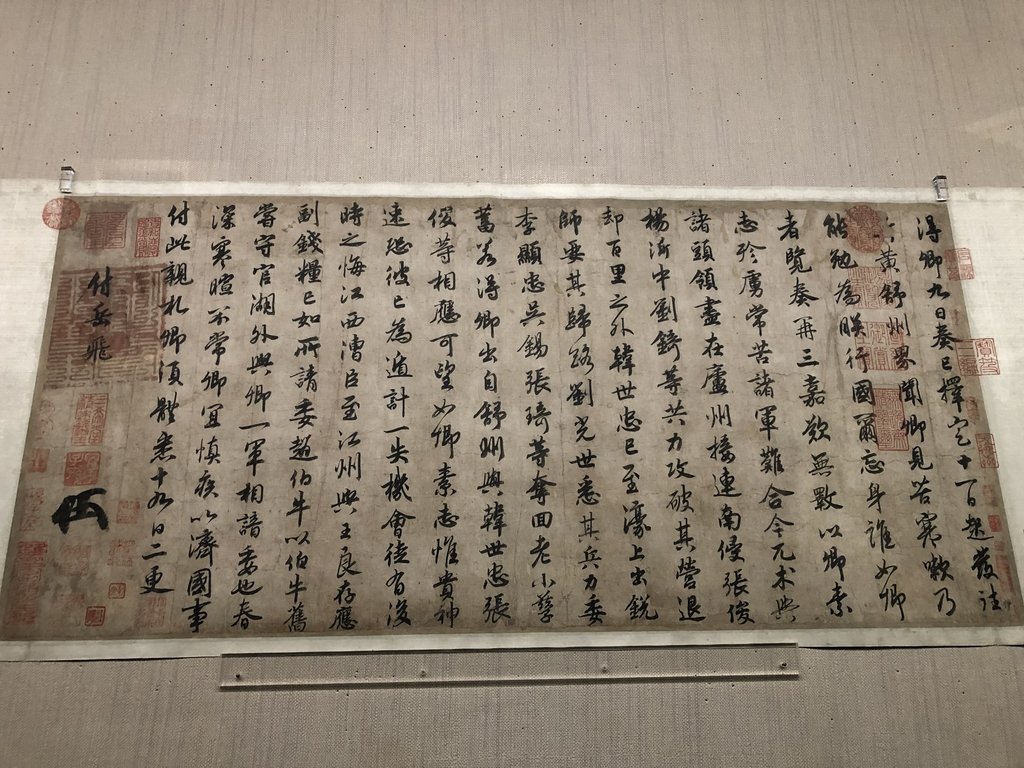 得卿九日奏已擇定十一日起發往
黃舒州界聞卿見苦寒嗽乃
能勉為朕行國爾忘身誰如卿
者覽奏再三嘉歎無斁以卿素
志殄虜常苦諸軍難合今兀朮與
諸頭領盡在廬州接連南侵張俊
楊沂中劉錡等共力攻破其營退
却百里之外韓世忠已至濠上出銳
師要其歸路劉光世悉其兵力委
李顯忠吳錫張琦等奪回老小孳
畜若得卿出自舒州與韓世忠張
俊等相應可望如卿素志惟貴神
速恐彼已為遁計一失機會徒有後
時之悔江西漕臣至江州與王良存應
副錢糧已如所請委趙伯牛以伯牛舊
嘗守官湖外與卿一軍相諳委也春
深寒暄不常卿宜慎疾以濟國事
付此親札卿須體悉十九日二更
付岳飛